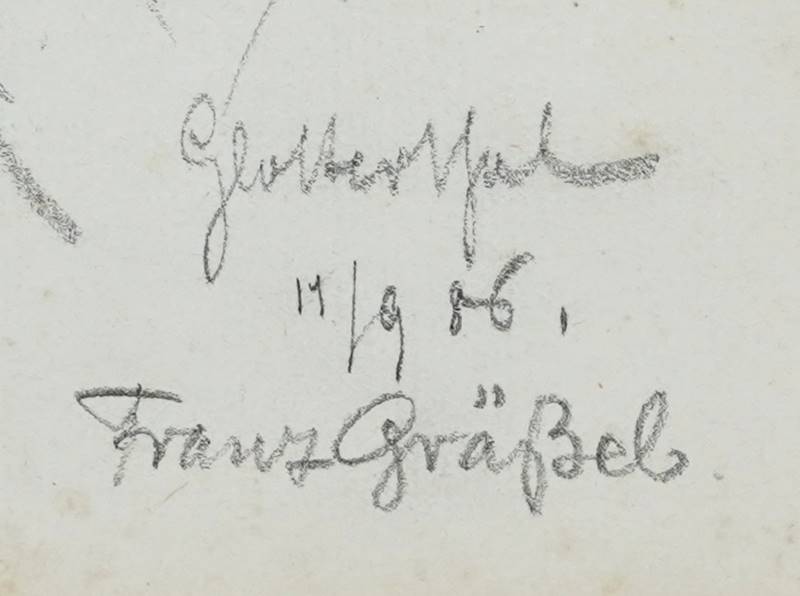 Glotterthal
11/9 86.
Franz Gräßel